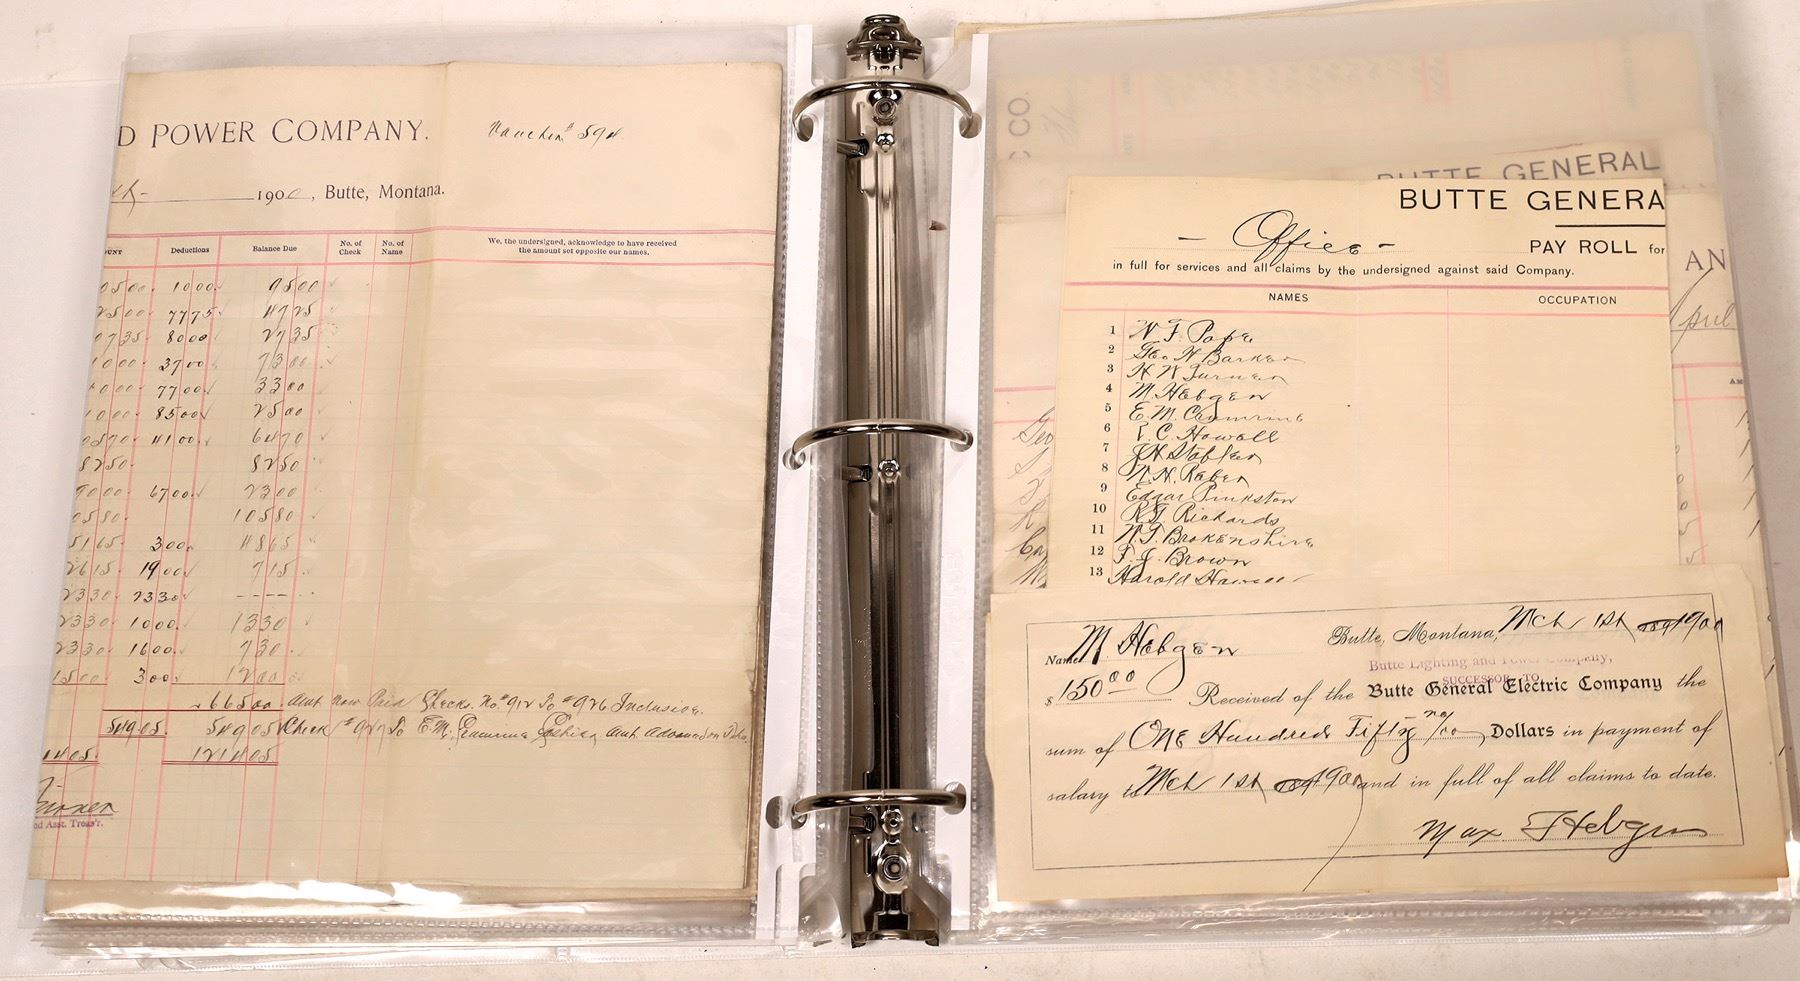 D POWER COMPANY.
Voucher # 594
1900, Butte, Montana.
Deductions Balance Due No. of Check No. of Name We, the undersigned, acknowledge to have received the amount set opposite our names.
0500 1000 9500
2500 7775 4725
0735 8000 2735
1000 3700 7300
7700 3300
1000 8500 2500
0570 4100 6470
8250 8250
9000 6700 2300
0580 10580
5165 300 4865
2615 1900 715
2330 2330 ----
2330 1000 1330
2330 1600 730
1500 300 1200
66500 Amt now Paid Checks No # 912 To # 926 Inclusive.
54905 54905 Check # 927 To E.M.
1405 121405
nd Asst. Treas'r.
CO.
BUTTE GENERAL
BUTTE GENERA
- Office -
PAY ROLL for
in full for services and all claims by the undersigned against said Company.
NAMES OCCUPATION
1 W F Pope
2 Geo W Barker
3 H W Turner
4 M. Hebgen
5 E.M. Crumrine
6 C. Howell
7 J H Stabler
8 W. H. Raber
9 Edgar Pinkston
10 R. Richards
11 Brokenshire
12 J. Brown
13 Harold Howell
AN
pril
Name M. Hebgen Butte, Montana, Mch 1st 1900
Butte Lighting and Power Company,
SUCCESSOR TO
$ 150 00 Received of the Butte General Electric Company the
sum of One Hundred Fifty no/100 Dollars in payment of
salary to Mch 1st 1900 and in full of all claims to date.
Max Hebgen